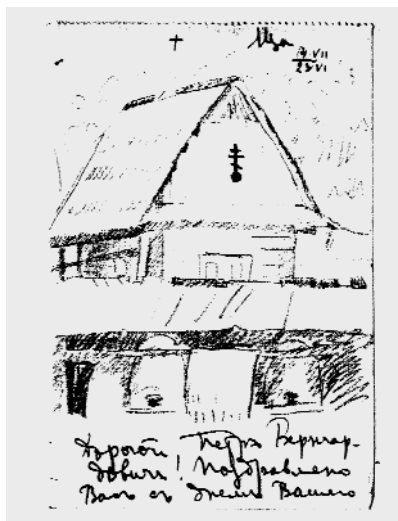 † Мза
11 VII
28 VI
Дорогой Петръ Бернгар-
довичъ! Поздравляю
Васъ съ днемъ Вашего